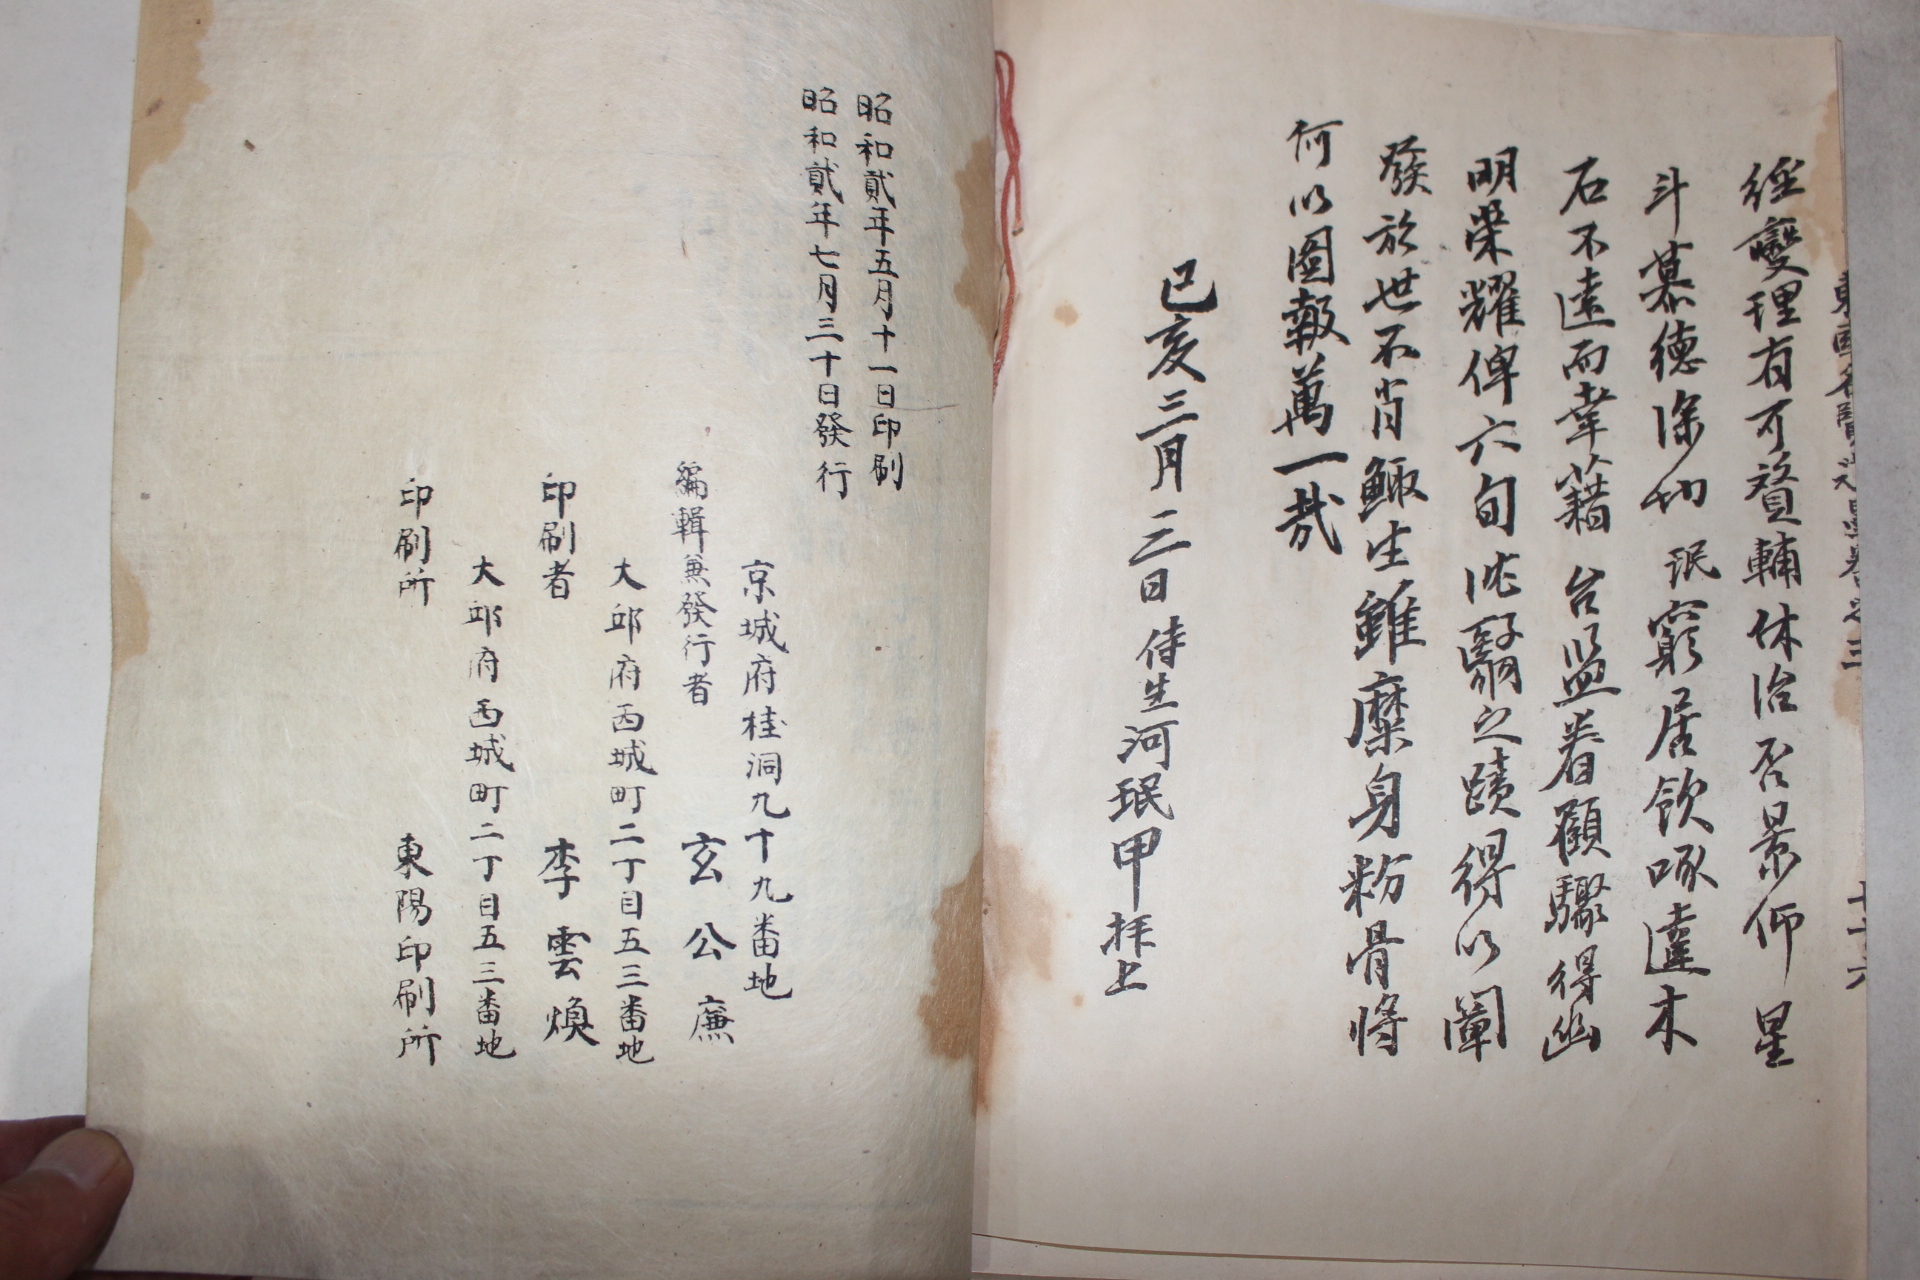 經變理有可資輔休治否景仰星
斗慕德深切 珉窮居飮啄違木
石不遠而幸藉 台監眷顧驟得幽
明榮耀俾六句沈翳之蹟得以闡
發於世不肖鲰生雖糜身粉骨將
何以圖報萬一哉
己亥三月三日侍生河珉甲拜上
昭和貳年五月十一日印刷
昭和貳年七月三十日發行
京城府桂洞九十九番地
編輯兼發行者 玄公廉
大邱府西城町二丁目五三番地
印刷者 李雲煥
大邱府西城町二丁目五三番地
印刷所 東陽印刷所